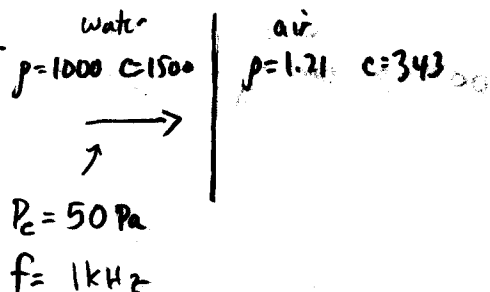 water air
ρ=1000 c=1500 ρ=1.21 c=343
Pc = 50 Pa
f= 1kHz